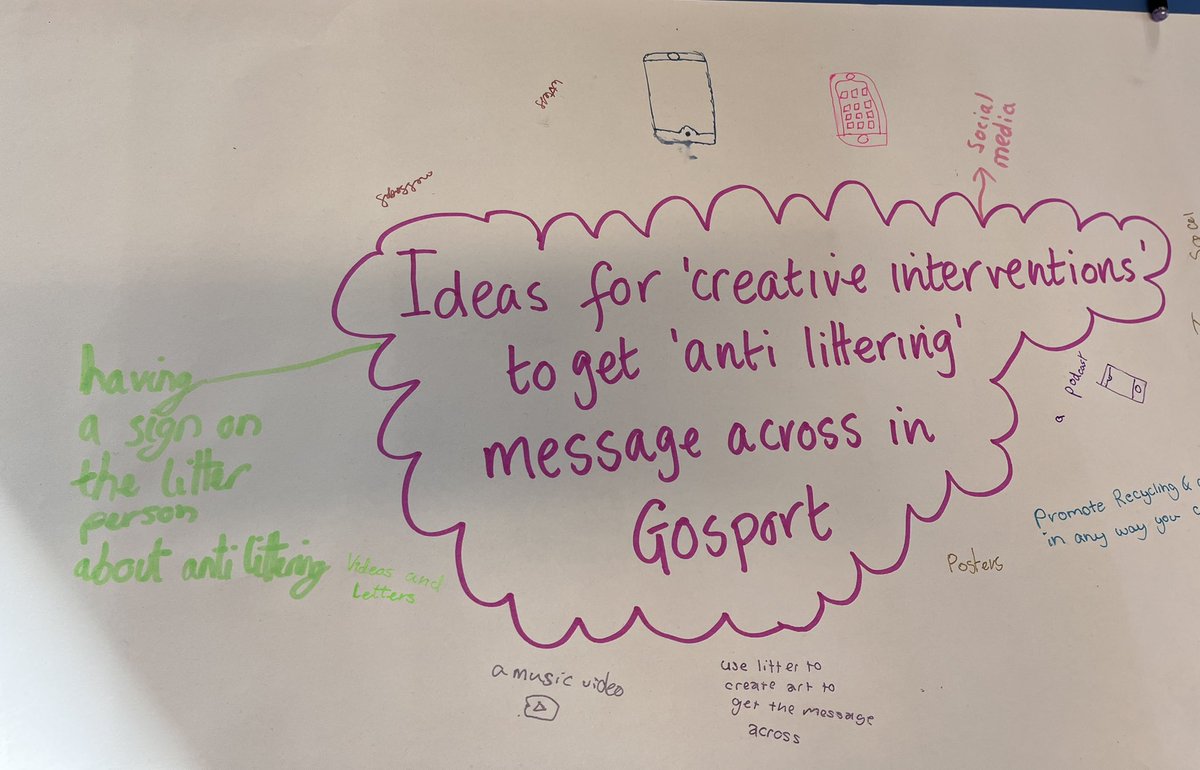 social
media
Ideas for 'creative interventions'
to get 'anti littering'
message across in
Gosport
having
a sign on
the litter
person
about anti littering
Videas and
Letters
a podcast
Promote Recycling &
in any way you
Posters
a music video
use litter to
create art to
get the message
across